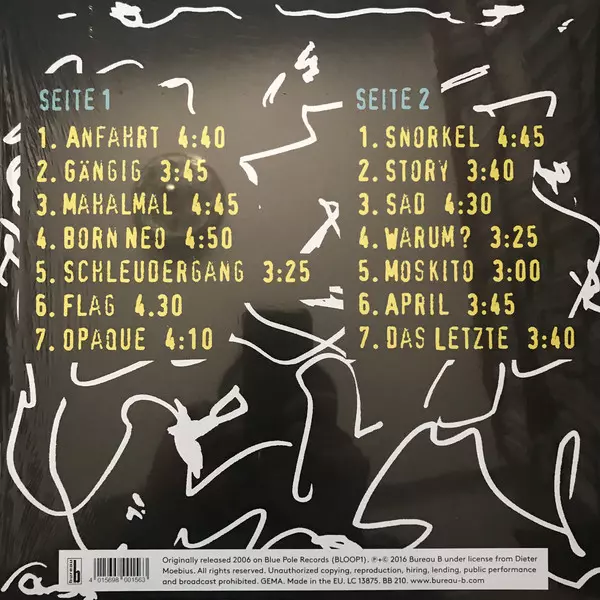 SEITE 1
1. ANFAHRT 4:40
2. GÄNGIG 3:45
3. MAHALMAL 4:45
4. BORN NEO 4:50
5. SCHLEUDERGANG 3:25
6. FLAG 4.30
7. OPAQUE 4:10
SEITE 2
1. SNORKEL 4:45
2. STORY 3:40
3. SAD 4:30
4. WARUM? 3:25
5. MOSKITO 3:00
6. APRIL 3:45
7. DAS LETZTE 3:40
b
4 015698 001563
Originally released 2006 on Blue Pole Records (BLOOP1). ℗+© 2016 Bureau B under license from Dieter
Moebius. All rights reserved. Unauthorized copying, reproduction, hiring, lending, public performance
and broadcast prohibited. GEMA. Made in the EU. LC 13875. BB 210. www.bureau-b.com